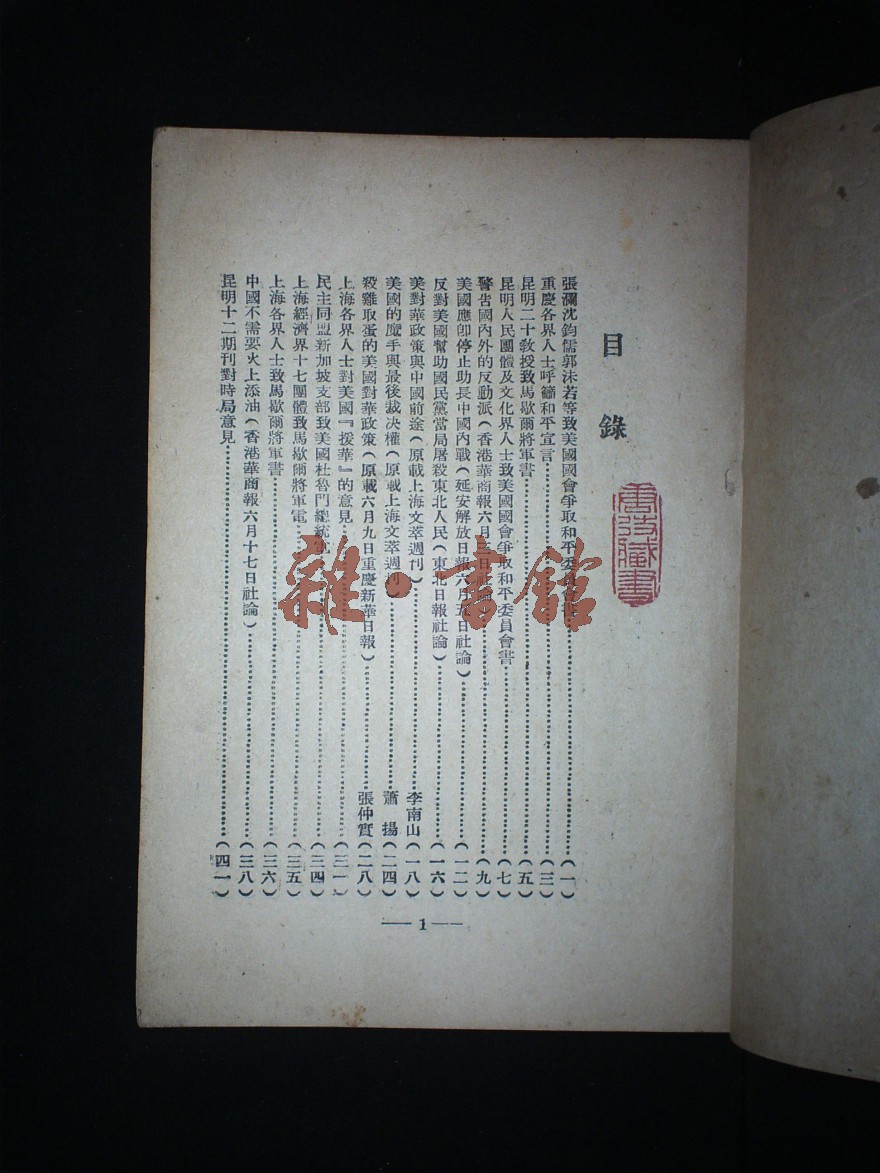 目錄
張瀾沈鈞儒郭沫若等致美國國會爭取和平委員會書……(一)
重慶各界人士呼籲和平宣言……(三)
昆明二十教授致馬歇爾將軍書……(五)
昆明人民團體及文化界人士致美國國會爭取和平委員會書……(七)
警告國內外的反動派(香港華商報六月三日社論)……(九)
美國應卽停止助長中國內戰(延安解放日報六月五日社論)……(一二)
反對美國幫助國民黨當局屠殺東北人民(東北日報社論)……(一六)
美對華政策與中國前途(原載上海文萃週刊)……李南山(一八)
美國的魔手與最後裁決權(原載上海文萃週刊)……蕭揚(二四)
殺雞取蛋的美國對華政策(原載六月九日重慶新華日報)……張仲實(二八)
上海各界人士對美國『援華』的意見……(三一)
民主同盟新加坡支部致美國杜魯門總統電……(三四)
上海經濟界十七團體致馬歇爾將軍電……(三五)
上海各界人士致馬歇爾將軍書……(三六)
中國不需要火上添油(香港華商報六月十七日社論)……(三八)
昆明十二期刊對時局意見……(四一)
— 1 —
雜·書館
藏書